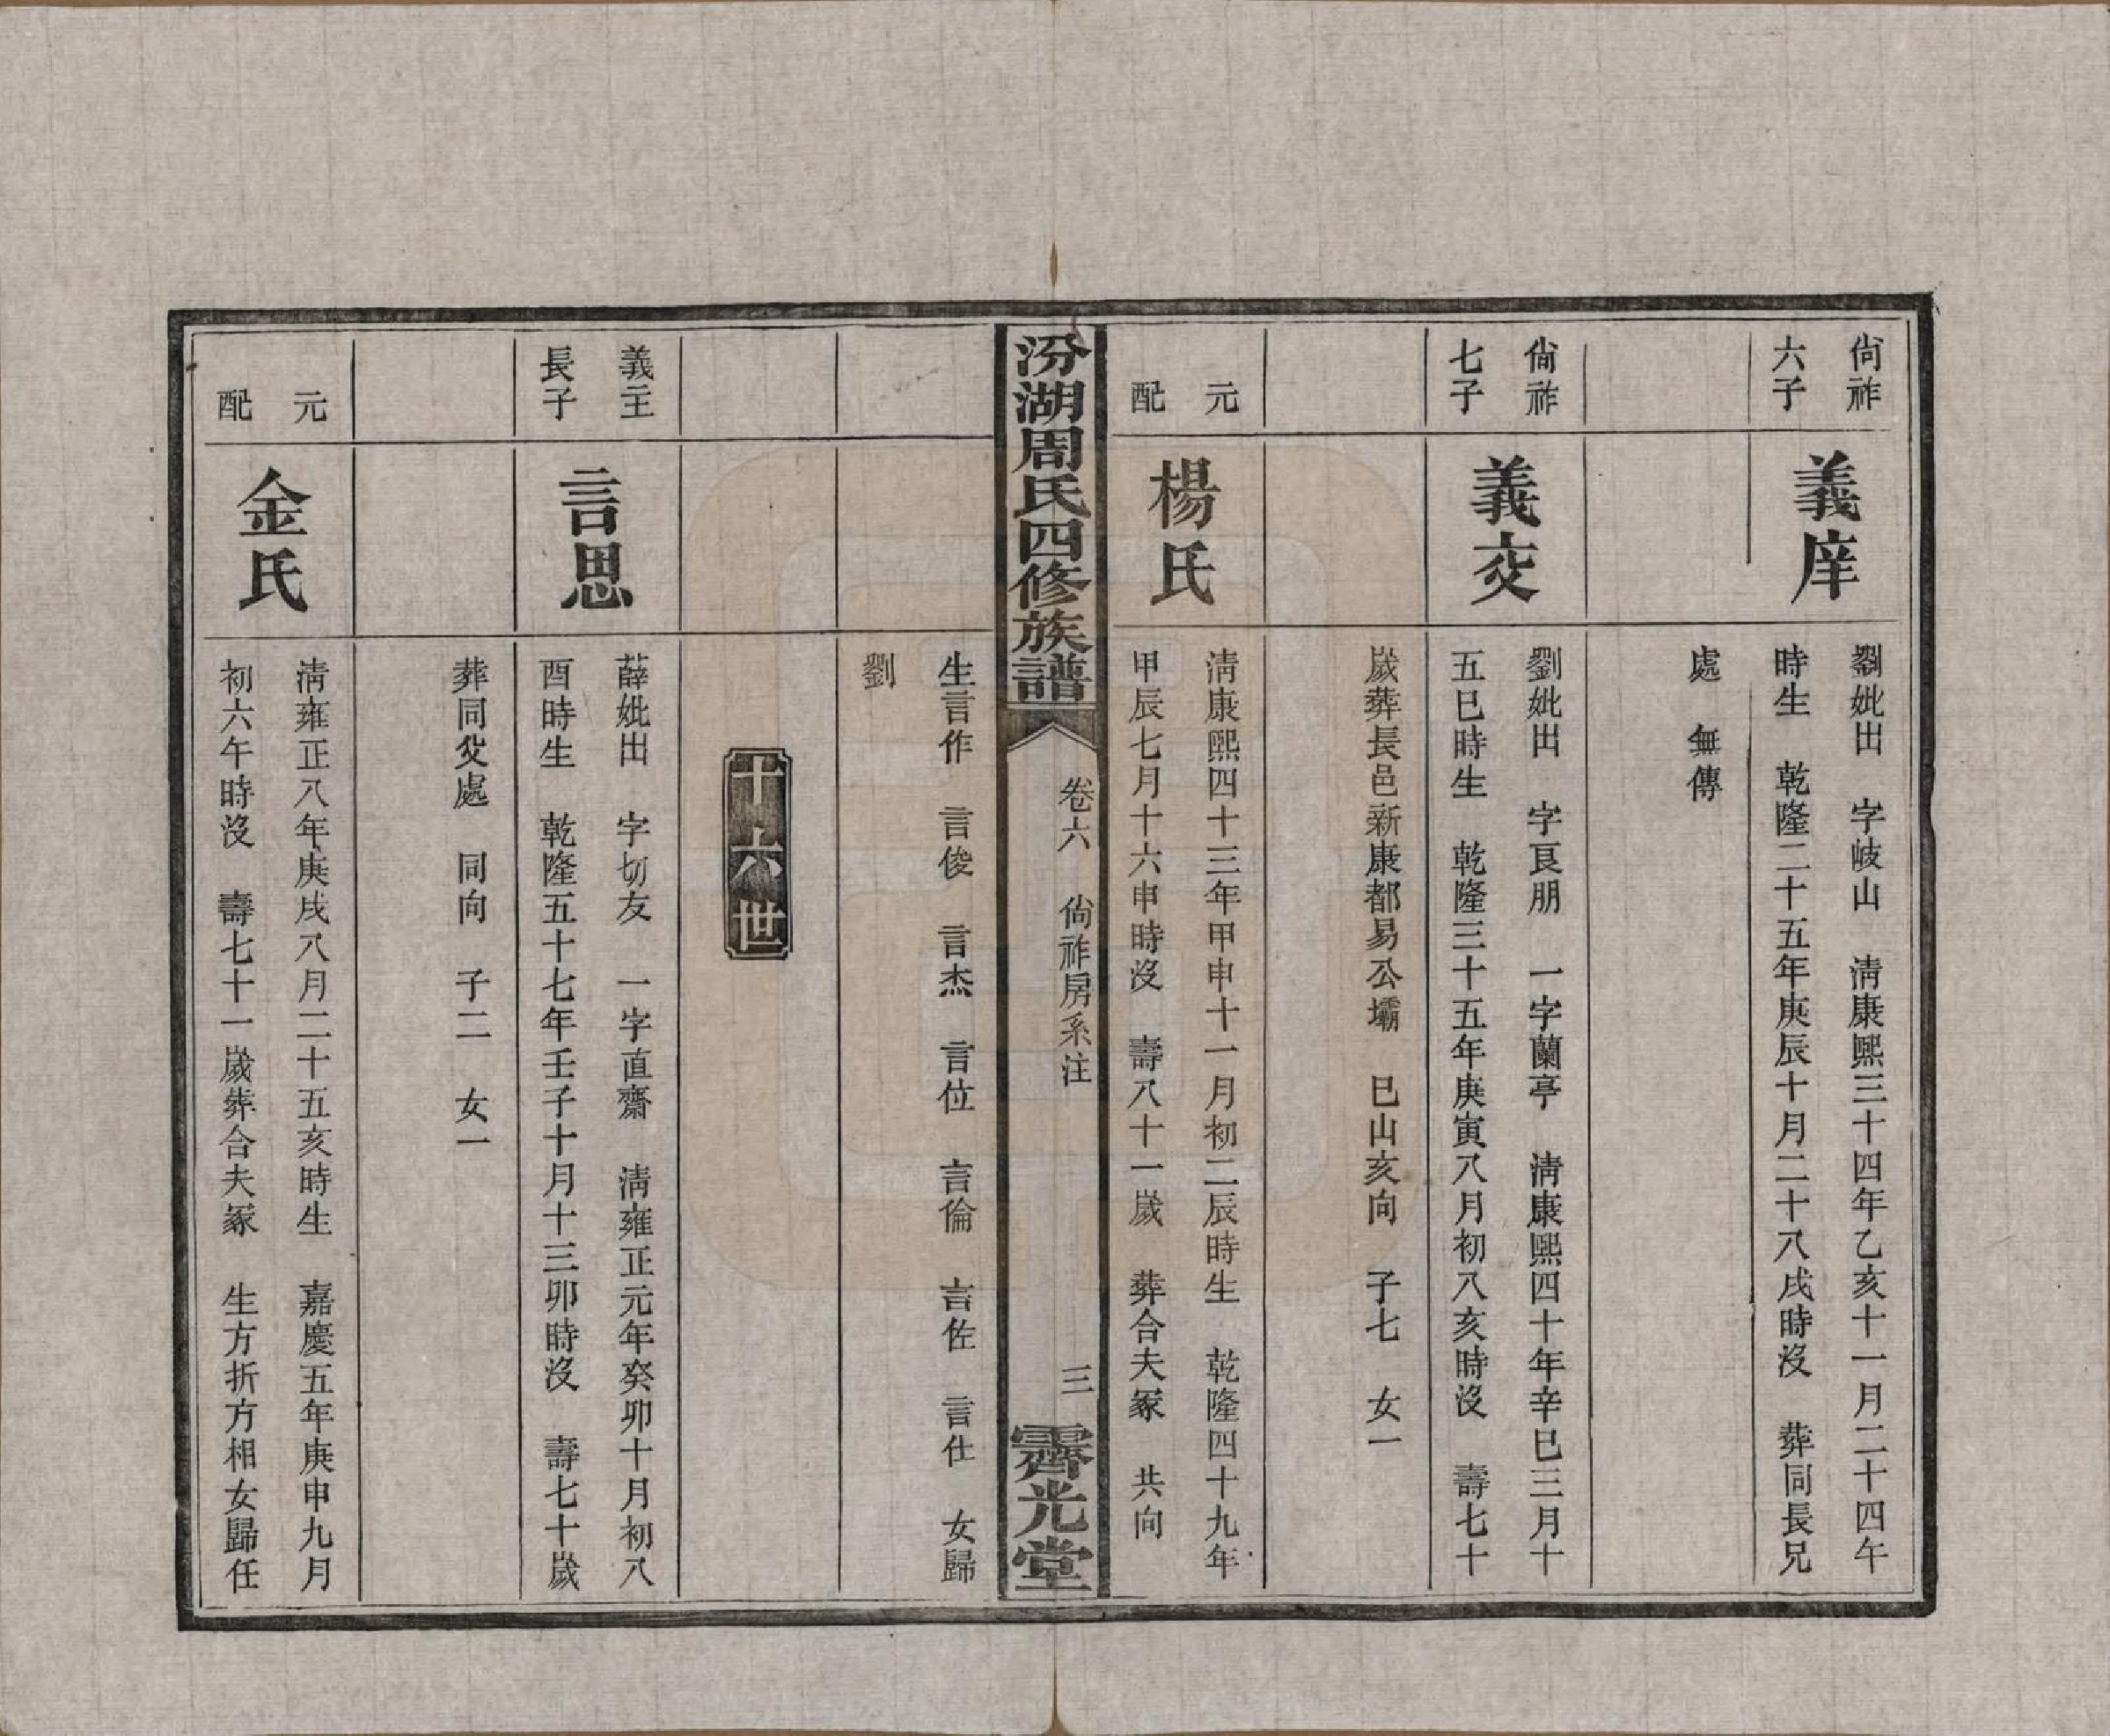 尙祚
六子
義庠
劉妣出　字岐山　淸康熙三十四年乙亥十一月二十四午
時生　乾隆二十五年庚辰十月二十八戌時沒　葬同長兄
處　無傳
尙祚
七子
義交
劉妣出　字艮朋　一字蘭亭　淸康熙四十年辛巳三月十
五巳時生　乾隆三十五年庚寅八月初八亥時沒　壽七十
歲葬長邑新康都易公壩　巳山亥向　子七　女一
元
配
楊氏
淸康熙四十三年甲申十一月初二辰時生　乾隆四十九年
甲辰七月十六申時沒　壽八十一歲　葬合夫冢　共向
汾湖周氏四修族譜
卷六　尙祚房系注
三
霽光堂
生言作　言俊　言杰　言位　言倫　言佐　言仕　女歸
劉
十六世
義主
長子
言思
薛妣出　字切友　一字直齋　淸雍正元年癸卯十月初八
酉時生　乾隆五十七年壬子十月十三卯時沒　壽七十歲
葬同父處　同向　子二　女一
元
配
金氏
淸雍正八年庚戌八月二十五亥時生　嘉慶五年庚申九月
初六午時沒　壽七十一歲葬合夫冢　生方折方相女歸任